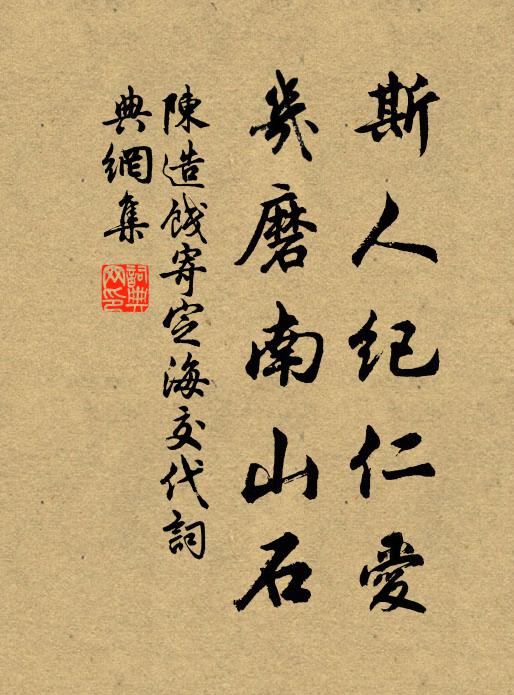 斯人纪仁愛
幾磨南山石
陳造餞寄定海交代詞
典網集
詞典網印